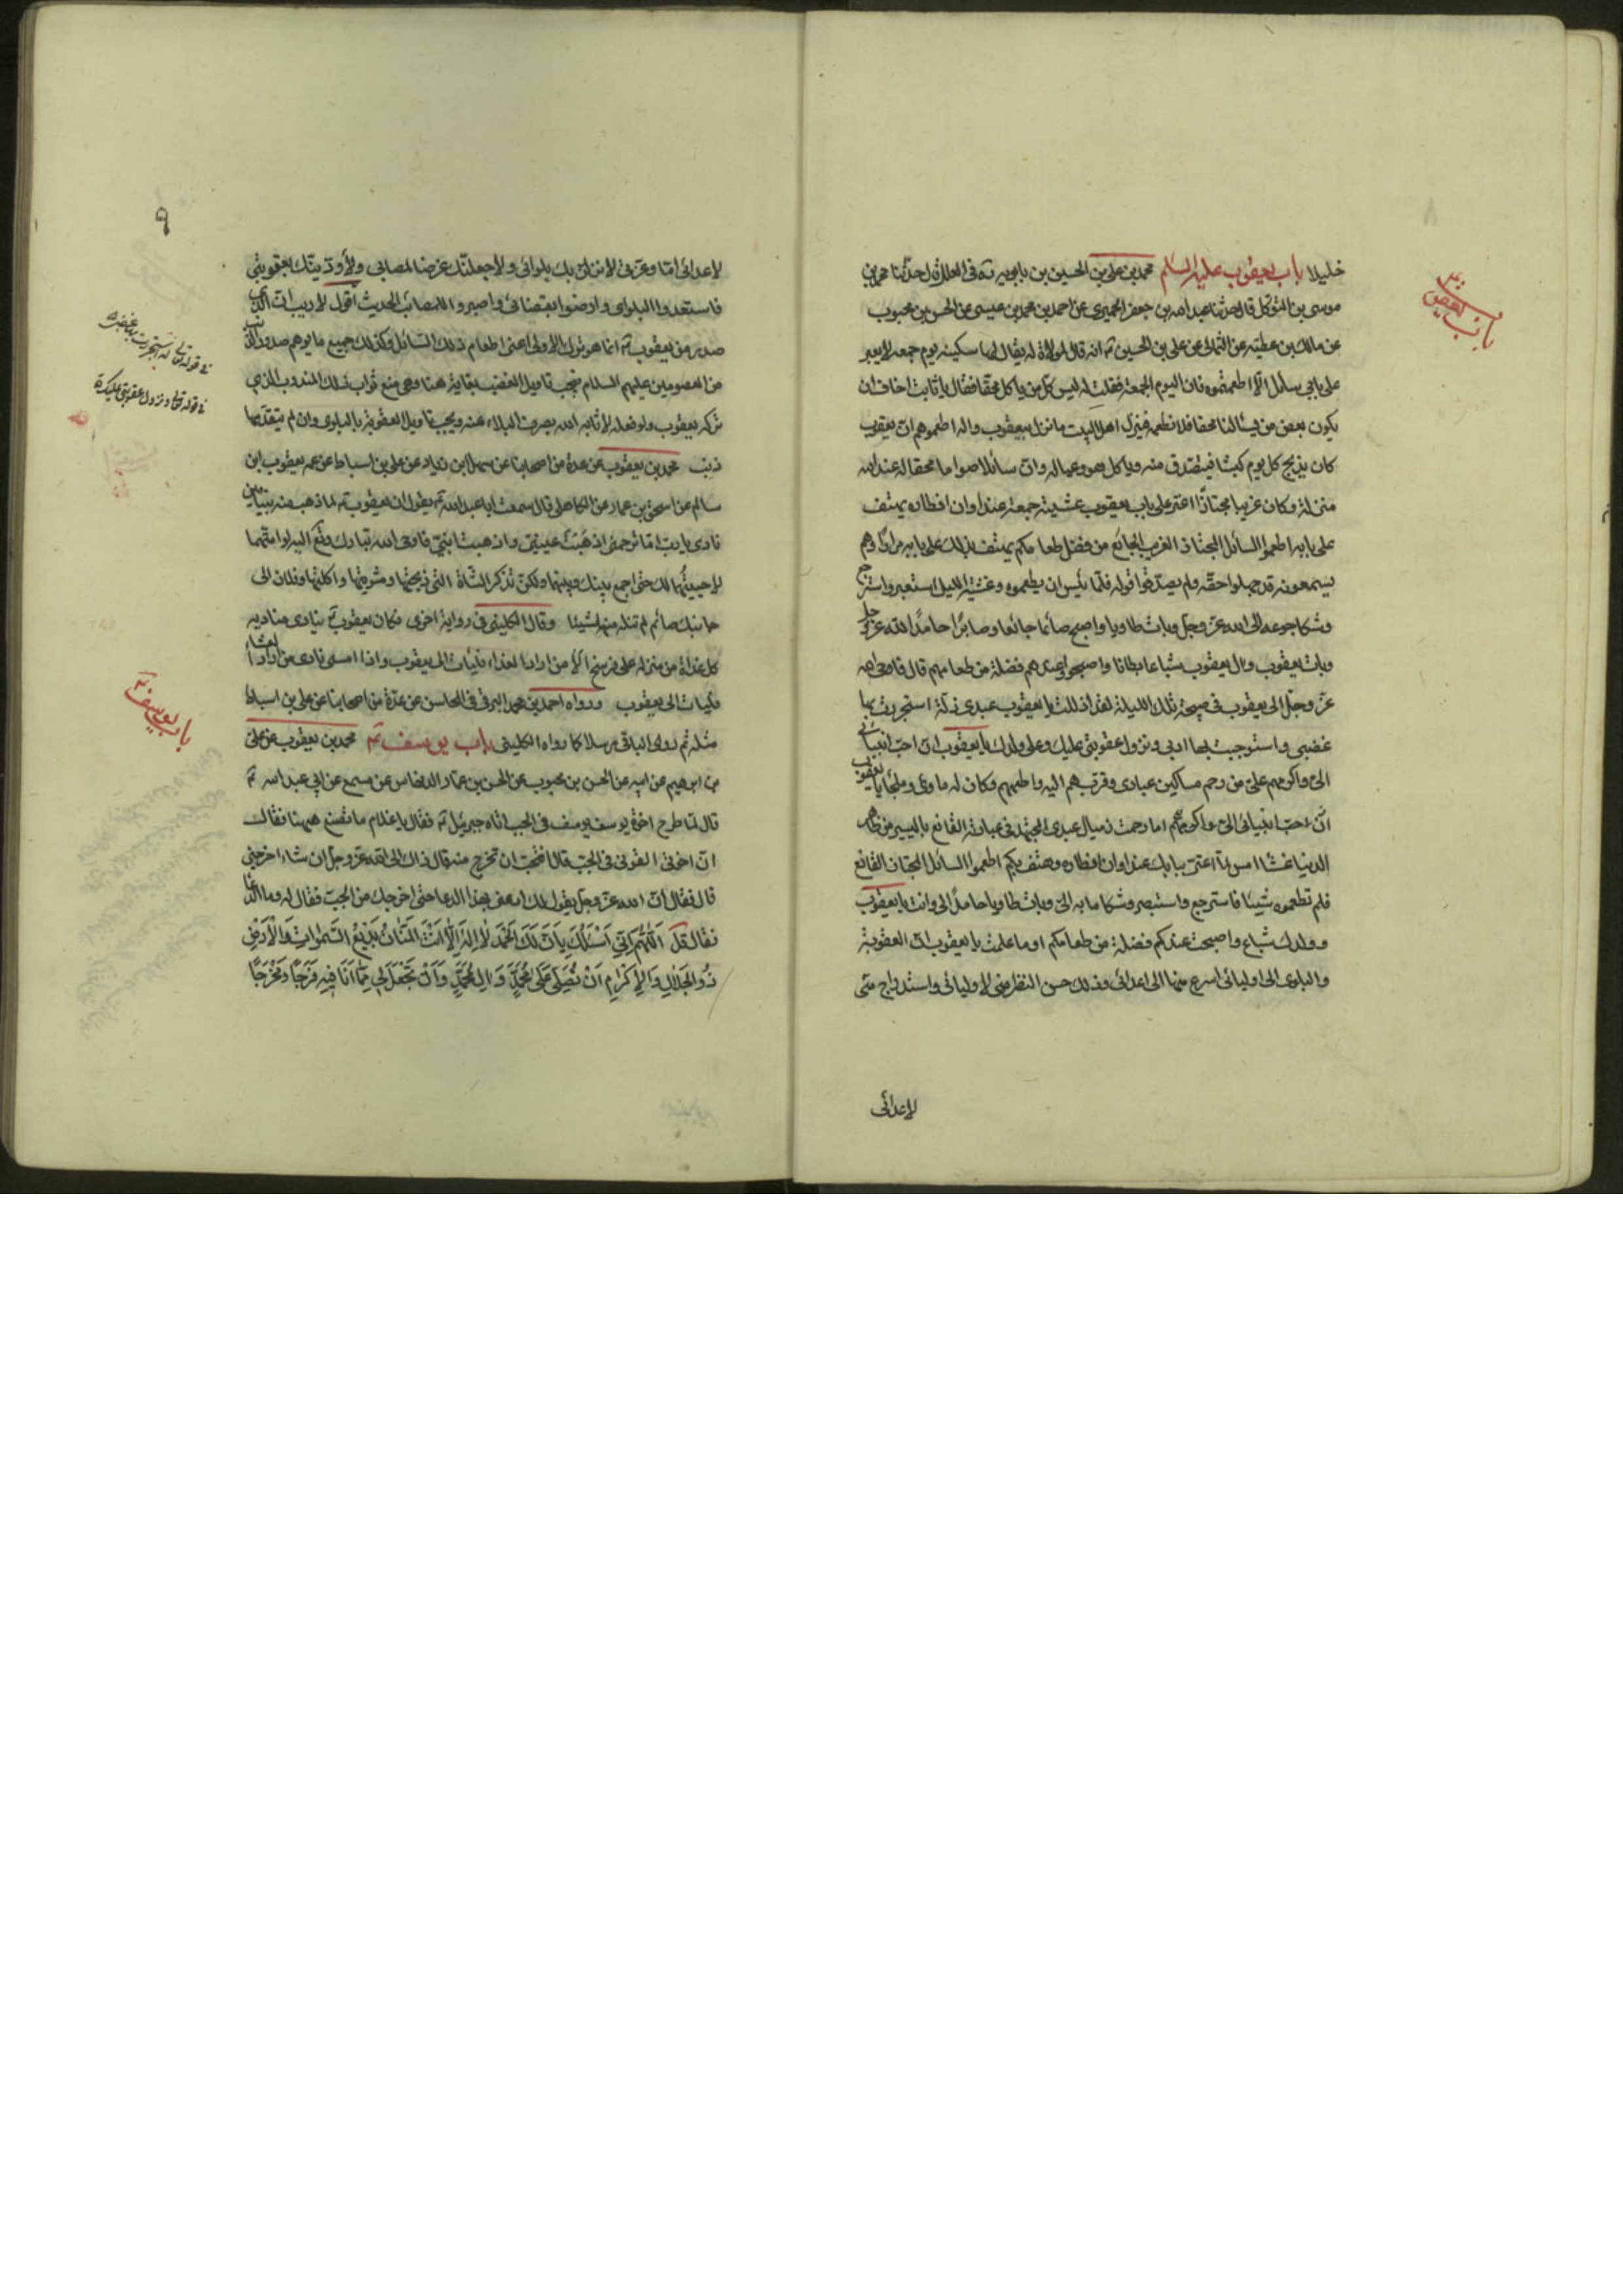 باب يعقوب
خليلا باب يعقوب عليه السلام محمد بن على بن الحسين بن بابويه ره فى العلل قال حدثنا محمد بن
موسى بن المتوكل قال حدثنا عبد الله بن جعفر الحميرى عن احمد بن محمد بن عيسى عن الحسن بن محبوب
عن مالك بن عطيه عن الثمالى عن على بن الحسين ع انه قال لمولاة له يقال لها سكينه يوم جمعه لا يعبر
على بابى سائل الا اطعمتموه فان اليوم الجمعة فقلت له ليس كل من يسأل محقا فقال يا ثابت اخاف ان
يكون بعض من يسألنا محقا فلا نطعمه فينزل اهل البيت ما نزل بيعقوب واله اطعموهم ان يعقوب
كان يذبح كل يوم كبشا فيتصدق منه وياكل هو وعياله وان سائلا صواما محقا له عند الله
منزلة وكان غريبا مجتازا اعتر على باب يعقوب عشية جمعة عند اوان افطاره يهتف
على بابه اطعموا السائل المجتاز الغريب الجائع من فضل طعامكم يهتف بذلك على بابه مرارا وهم
يسمعونه قد جهلوا حقه ولم يصدقوا قوله فلما يئس ان يطعموه وغشيه الليل استعبر واسترجع
وشكا جوعه الى الله عز وجل وبات طاويا واصبح صائما جائعا وصابرا حامدا لله عز وجل
وبات يعقوب وال يعقوب شباعا بطانا واصبحوا وعندهم فضلة من طعامهم قال فاوحى الله
عز وجل الى يعقوب فى صبيحة تلك الليلة لقد اذللت يا يعقوب عبدى ذلة استجررت بها
غضبى واستوجبت بها ادبى ونزول عقوبتى عليك وعلى ولدك يا يعقوب ان احب انبيائى
الى واكرمهم على من رحم مساكين عبادى وقربهم اليه واطعمهم وكان له ماوى وملجا يا يعقوب
اما رحمت ذميال عبدى المجتهد فى عبادته القانع باليسير من ظاهر
الدنيا عشاء امس لما اعتر ببابك عند اوان افطاره وهتف بكم اطعموا السائل المجتاز القانع
فلم تطعموه شيئا فاسترجع واستعبر وشكا ما به الى وبات طاويا حامدا لى وانت يا يعقوب
وولدك شباع واصبحت عندكم فضلة من طعامكم اوما علمت يا يعقوب ان العقوبة
والبلوى الى اوليائى اسرع منها الى اعدائى وذلك حسن النظر منى لاوليائى واستدراج منى
لاعدائى
٩
لاعدائى اما وعزتى لانزلن بك بلوائى ولاجعلنك غرضا لمصابى ولاؤذينك بعقوبتى
فاستعدوا لبلواى وارضوا بقضائى واصبروا للمصائب الحديث اقول لا ريب ان الذى
صدر من يعقوب ع انما هو ترك الاولى اعنى اطعام ذلك السائل وكذلك جميع ما يوهم صدور الذنب
من المعصومين عليهم السلام فيجب تاويل الغضب بغايته هنا وهى منع ثواب ذلك المندوب الذى
تركه يعقوب ولو فعله لاثابه الله بصرف البلاء عنه ويجب تاويل العقوبة بالبلوى وان لم يتقدمها
ذنب محمد بن يعقوب عن عدة من اصحابنا عن سهل بن زياد عن على بن اسباط عن عمه يعقوب ابن
سالم عن اسحق بن عمار عن الكاهلى قال سمعت ابا عبد الله ع يقول ان يعقوب ع لما ذهب منه بنيامين
نادى يا رب اما ترحمنى اذهبت عينى واذهبت ابنى فاوحى الله تبارك وتع اليه لو امتهما
لاحييتهما لك حتى اجمع بينك وبينهما ولكن تذكر الشاة التى ذبحتها وشويتها واكلتها وفلان الى
جانبك صائم لم تنله منها شيئا وقال الكلينى فى رواية اخرى فكان يعقوب ع ينادى مناديه
كل غداة من منزله على فرسخ الا من اراد الغداء فليات الى يعقوب واذا امسى نادى من اراد العشاء
فليات الى يعقوب ورواه احمد بن محمد البرقى فى المحاسن عن عدة من اصحابنا عن على بن اسباط
مثله ثم روى الباقى مرسلا كما رواه الكلينى باب يوسف ع محمد بن يعقوب عن على
بن ابرهيم عن ابيه عن الحسن بن محبوب عن الحسن بن عمار الدهان عن مسمع عن ابى عبد الله ع
قال لما طرح اخوة يوسف يوسف فى الجب اتاه جبرئيل ع فقال يا غلام ما تصنع هيهنا فقال
ان اخوتى القونى فى الجب قال افتحب ان تخرج منه قال ذاك الى الله عز وجل ان شاء اخرجنى
قال فقال ان الله عز وجل يقول لك ادعنى بهذا الدعاء حتى اخرجك من الجب فقال له وما الدعاء
فقال قل اَللّهُمَّ اِنّى اَسْئَلُكَ بِاَنَّ لَكَ الْحَمْدَ لا اِلهَ اِلّا اَنْتَ الْمَنّانُ بَديعُ السَّمواتِ وَالْاَرْضِ
ذُو الْجَلالِ وَالْاِكْرامِ اَنْ تُصَلِّىَ عَلى مُحَمَّدٍ وَالِ مُحَمَّدٍ وَاَنْ تَجْعَلَ لى مِمّا اَنَا فيهِ فَرَجًا وَمَخْرَجًا
باب يوسف ع